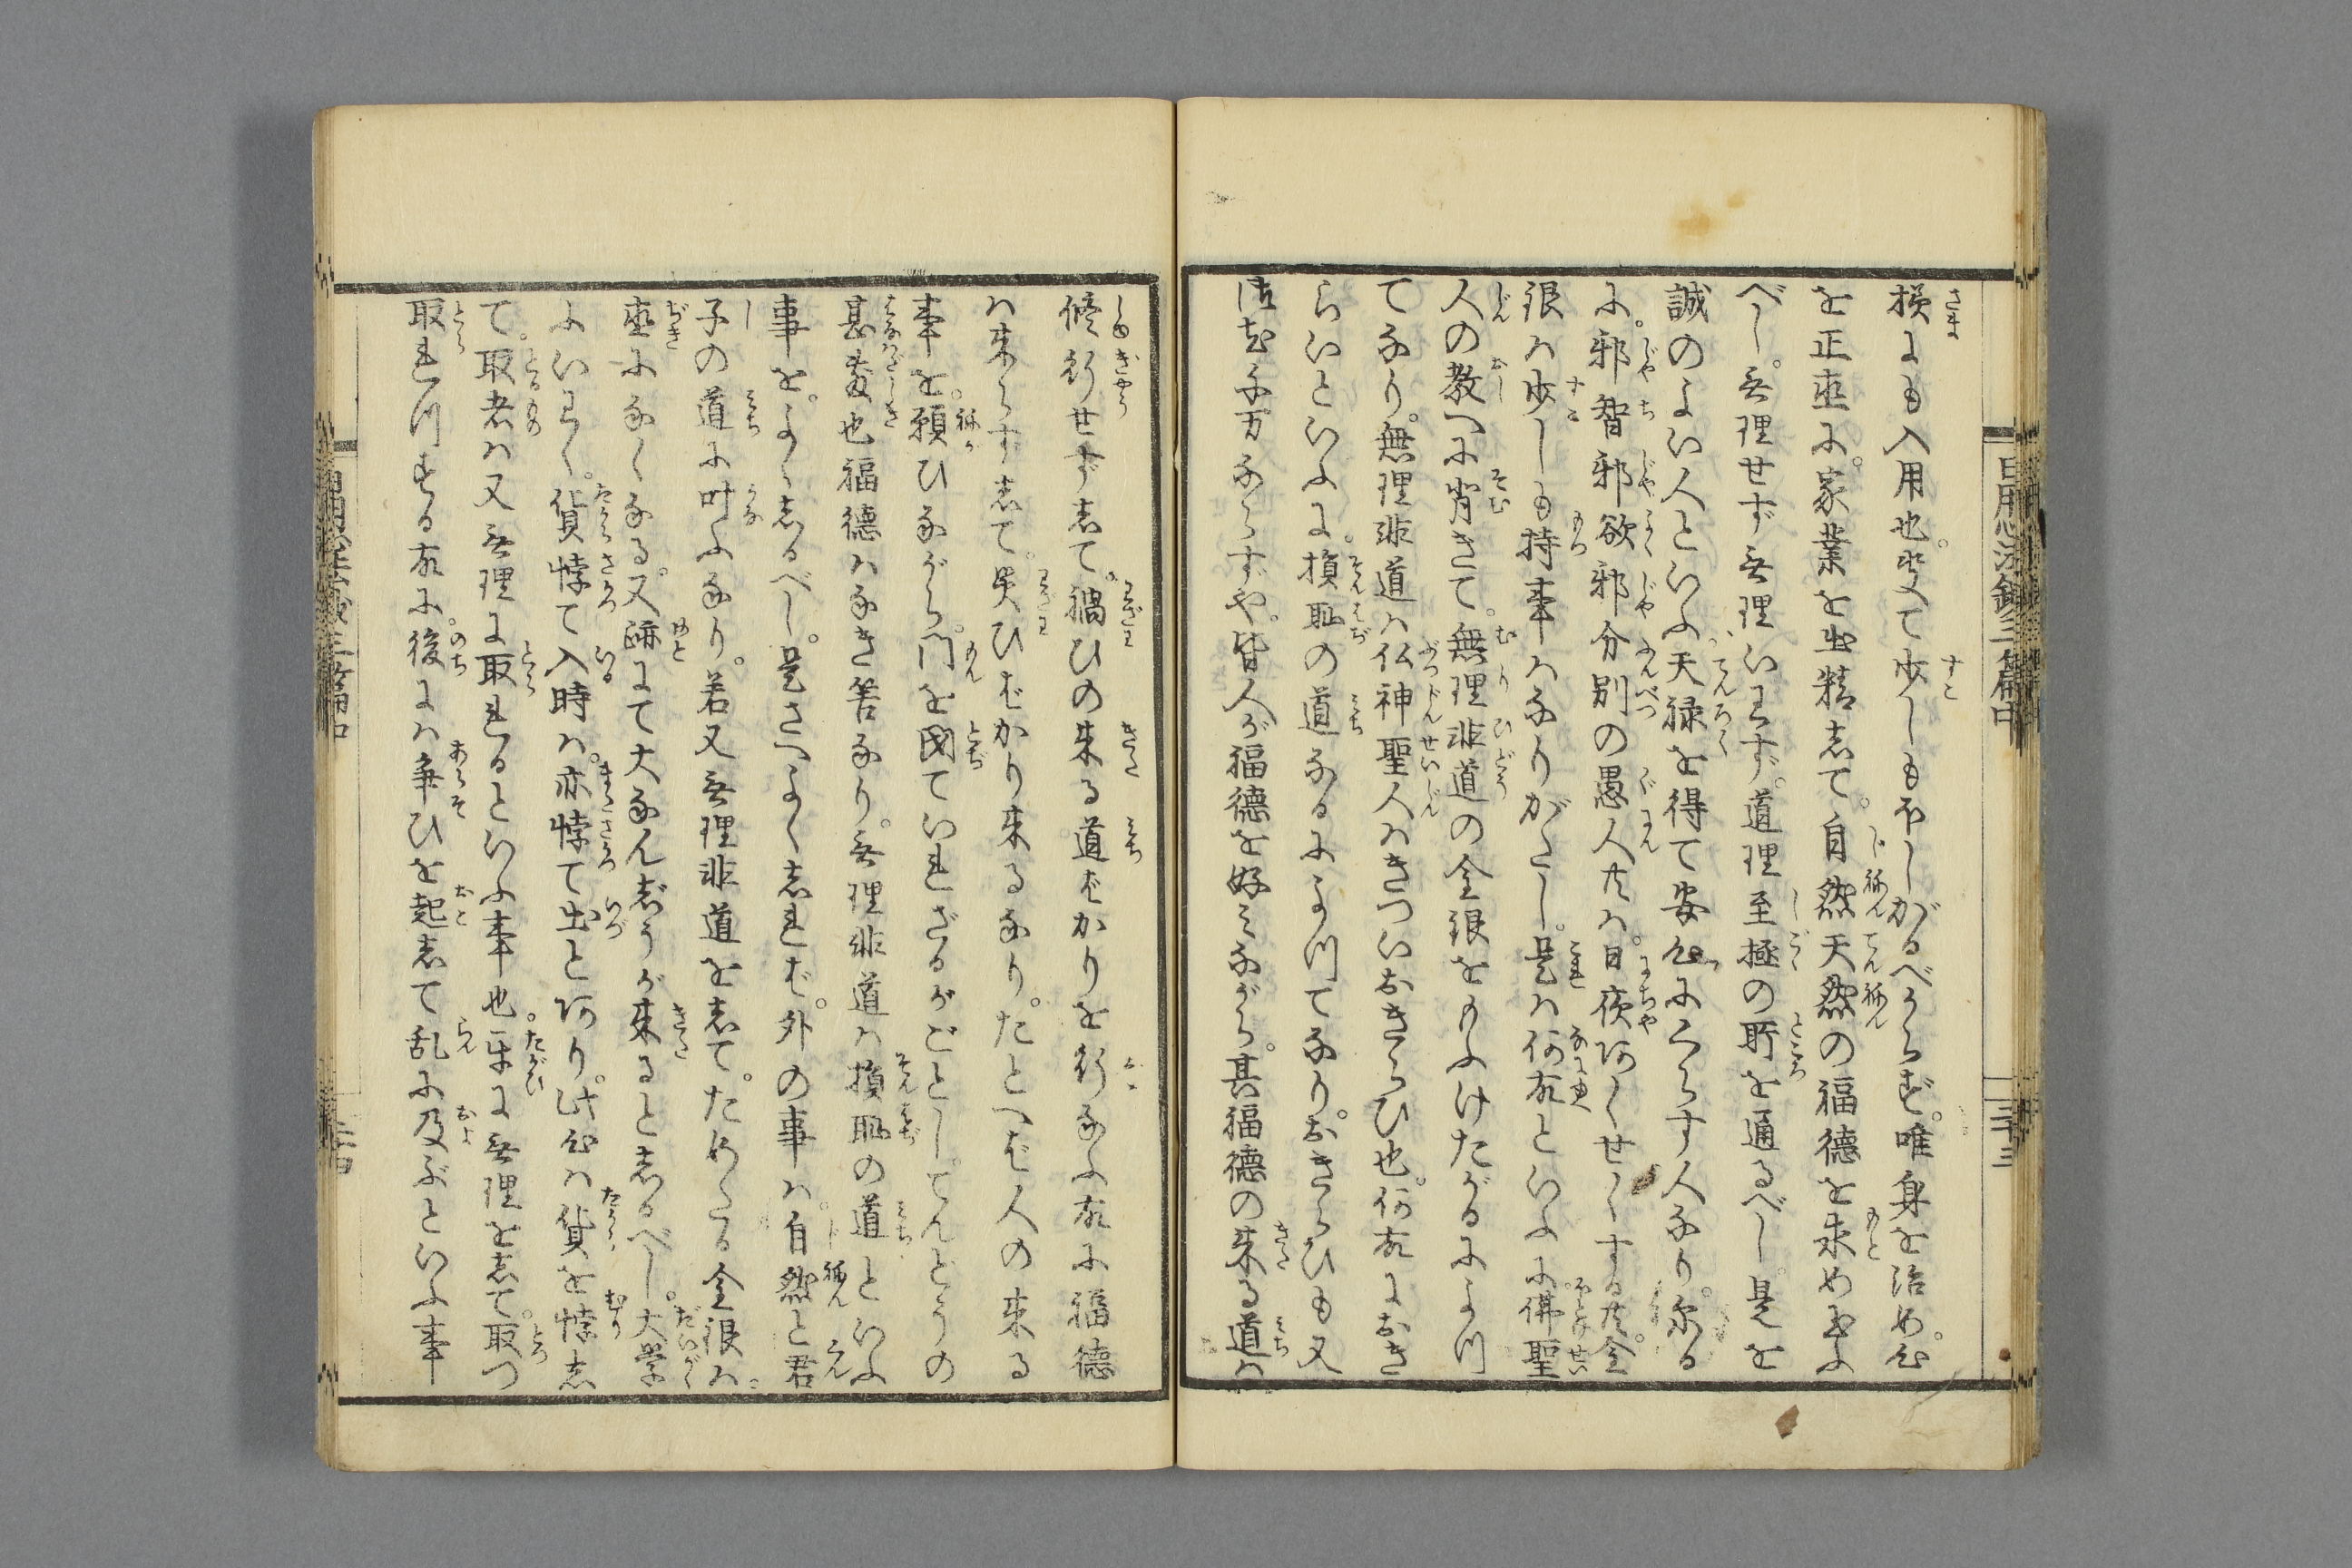 損にも入用也。堅て少しもほしがるべからず。唯身を治め。心
を正直に。家業を出精志て。自然天然の福徳を求め給ふ
べし。無理せず無理いわず。道理至極の所を通るべし。是を
誠のよい人といふ天禄を得て安心にくらす人なり。然る
に。邪智邪欲邪分別の愚人共ハ。日夜阿くせくする共。金
銀ハ少しも持事ハなりがたし。是ハ何故といふに。佛聖
人の教へに背きて。無理非道の金銀をもふけたがるによつ
てなり。無理非道ハ仏神聖人ハきついおきらひ也。何故におき
らいといふに。損恥の道なるによつてなり。おきらひも又
御尤千万ならずや。皆人が福徳を好ミながら。其福徳の来る道ハ
修行せず志て。禍ひの来る道ばかりを行なふ故に福徳
ハ来らず志て。災ひばかり来るなり。たとへバ人の来る
事を。願ひながら。門を閉ていれざるがごとし。てんとうの
甚憂也福徳ハなき筈なり。無理非道ハ損恥の道といふ
事を。よく志るべし。是さへよく志れば。外の事ハ。自然と君
子の道に叶ふなり。若又無理非道を志て。ためたる金銀ハ
直になくなる。又跡にて大なんぎうが来ると志るべし。大学
にいわく。貨悖て入時ハ。亦悖て出と阿り。此心ハ貨を悖志
て。取者ハ又無理に取れるといふ事也。互に無理を志て。取つ
取れつする故に。後にハ争ひを起志て乱に及ぶといふ事
日用心法鈔三篇中
三十三